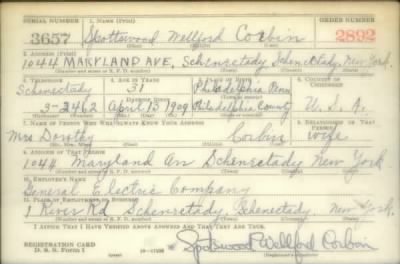 SERIAL NUMBER 1. NAME (Print) ORDER NUMBER
3657 Spottswood Wellford Corbin 2892
(First) (Middle) (Last)
2. ADDRESS (Print)
1044 MARYLAND AVE, Schenectady Schenectady New York.
(Number and street or R. F. D. number) (Town) (County) (State)
3. TELEPHONE 4. AGE IN YEARS 5. PLACE OF BIRTH 6. COUNTRY OF CITIZENSHIP
Schenectady 31 Philadelphia Penn
DATE OF BIRTH
3-2462 April 13 1909 Philadelphia County U.S.A.
7. NAME OF PERSON WHO WILL ALWAYS KNOW YOUR ADDRESS 8. RELATIONSHIP OF THAT PERSON
Mrs Dorothy Corbin wife
9. ADDRESS OF THAT PERSON
1044 Maryland Av Schenectady New York
(Number and street or R. F. D. number) (Town) (County) (State)
10. EMPLOYER'S NAME
General Electric Company
11. PLACE OF EMPLOYMENT OR BUSINESS
1 River Rd Schenectady Schenectady. New York.
(Number and street or R. F. D. number) (Town) (County) (State)
I AFFIRM THAT I HAVE VERIFIED ABOVE ANSWERS AND THAT THEY ARE TRUE.
REGISTRATION CARD
D. S. S. Form 1 Spotswood Wellford Corbin